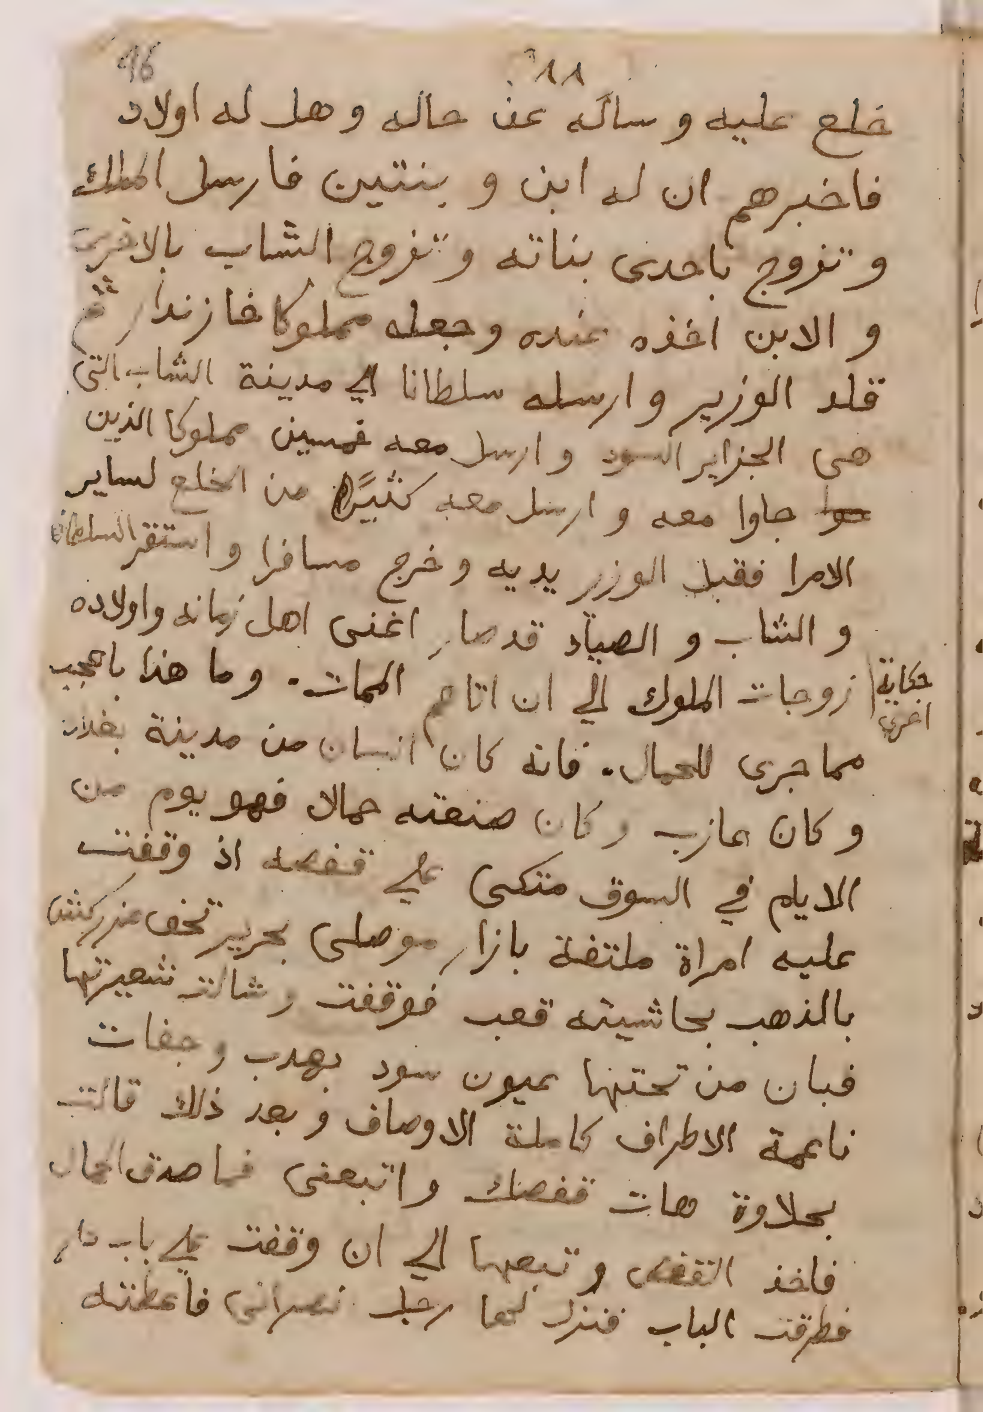 96
٨٨
خلع عليه و ساله عن حاله و هل له اولاد
فاخبرهم ان له ابن و بنتين فارسل الملك
و تزوج باحدى بناته و تزوج الشاب بالاخرى
و الابن اخذه عنده وجعله مملوكا خازندار ثم
قلد الوزير و ارسله سلطانا الي مدينة الشاب التى
هى الجزاير السود و ارسل معه خمسين مملوكا الذين
جاوا معه و ارسل معه كثيرًا من الخلع لساير
الامرا فقبل الوزر يديه و خرج مسافرا و استقر السلطان
و الشاب و الصياد قد صار اغنى اهل زمانه واولاده
زوجات الملوك الي ان اتاهم الممات. و ما هذا باعجب
حكاية
اخرى
مما جرى للحمال. فانه كان انسان من مدينة بغداد
و كان عازب و كان صنعته حمالا فهو يوم من
الايام في السوق متكى علي قفصه اذ وقفت
عليه امراة ملتفة بازار موصلى بحرير مزركش
بالذهب بحاشيته قعب فوقفت و شالت شعيرتها
فبان من تحتها عيون سود بهدب و جفات
ناعمة الاطراف كاملة الاوصاف و بعد ذلك قالت
بحلاوة هات قفصك و اتبعنى فما صدق الحمال
فاخذ القفص و تبعها الي ان وقفت علي باب دار
فطرقت الباب فنزل لها رجل نصرانى فاعطته